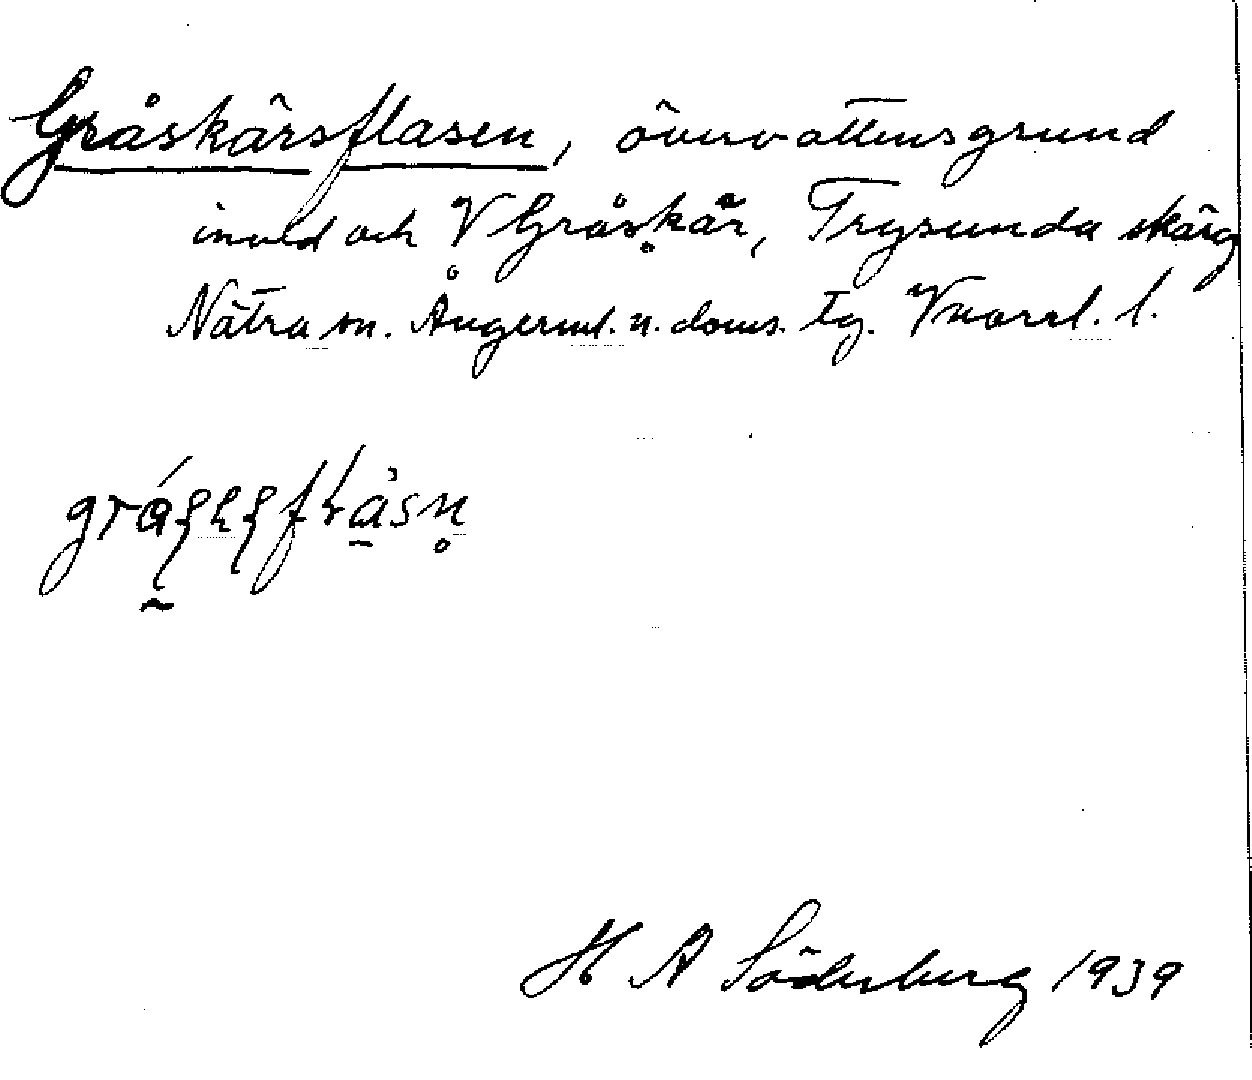 Gråskärsflasen, övervattensgrund
invid och V Gråskär, Trysunda skärg
Nätra sn. Ångerml. n. doms. tg. Vnorrl. l.
H A Söderberg 1939